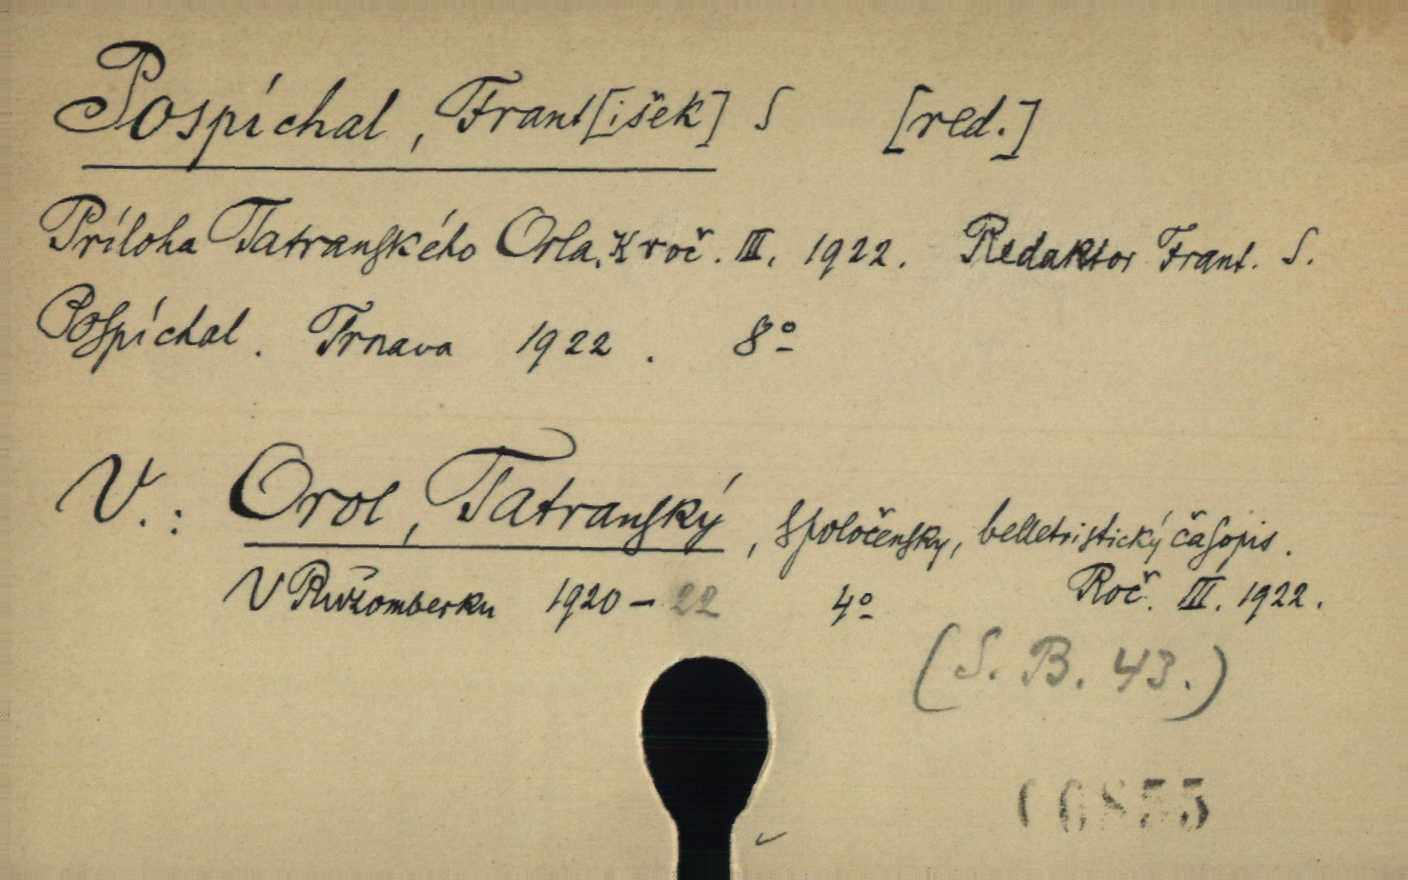 Pospíchal, Frant[išek] S [red.]
Príloha Tatranského Orla. K roč. III. 1922. Redaktor Frant. S.
Pospíchal. Trnava 1922. 8º
V.: Orol, Tatranský, spoločensky, belletristický časopis.
V Ružomberku 1920 - 22 4º Roč. III. 1922.
(S. B. 43.)
06855